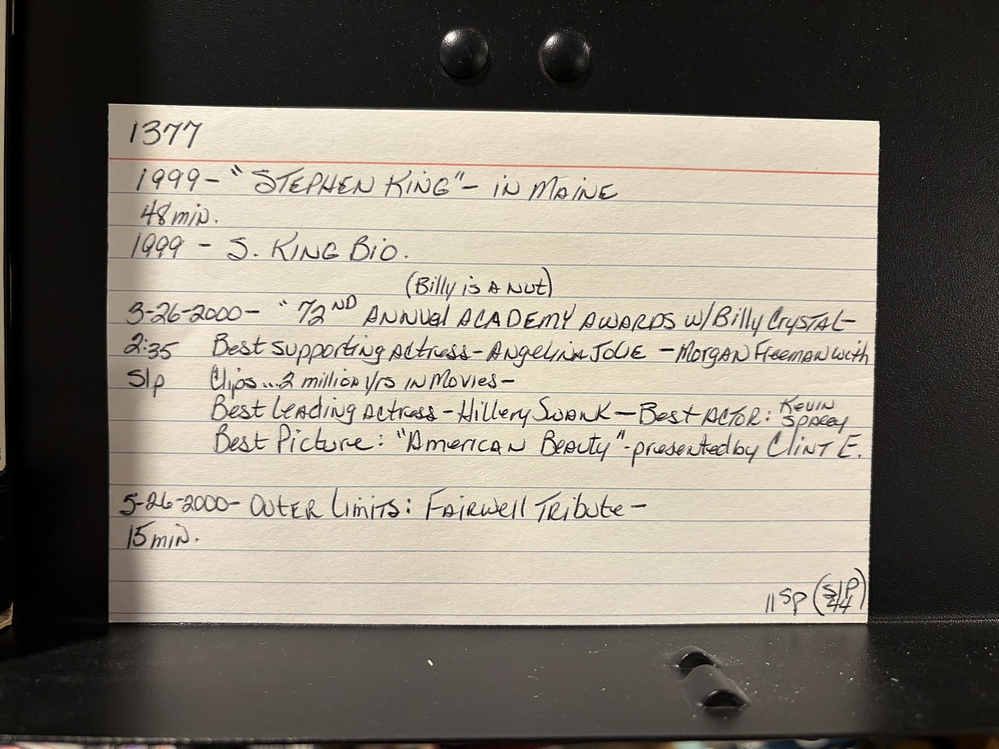 1377
1999- "STEPHEN KING"- IN MAINE
48 min.
1999 - S. KING BIO.
(Billy is A NUT)
3-26-2000- "72ND ANNUAL ACADEMY AWARDS w/Billy CRYSTAL-
2:35 Best Supporting Actress- ANGELINA JOLIE -MORGAN FREEMAN with
Slp Clips...2 million yrs IN Movies-
Best Leading Actress - Hillery SWANK - Best ACTOR: KEVIN SPACEY
Best Picture: "AMERICAN BEAUTY"-presented by CLINT E.
5-26-2000- OUTER LIMITS: FAIRWELL TRIBUTE-
15 min.
11 SP (SLP 44)